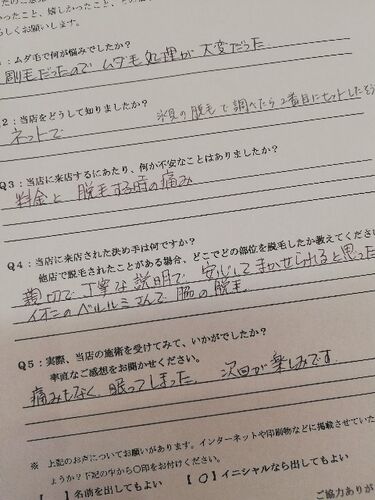 かったこと、嬉しかったこと、
しくお願いします。
：ムダ毛で何が悩みでしたか？
剛毛だったので ムダ毛処理が 大変だった
2：当店をどうして知りましたか？
ネットで
の脱毛で調べたら2番目にヒットしたそう
Q3：当店に来店するにあたり、何か不安なことはありましたか？
料金と脱毛する時の痛み
Q4：当店に来店された決め手は何ですか？
他店で脱毛されたことがある場合、どこでどの部位を脱毛したか教えてください
親切で丁寧な説明で 安心してまかせられると思った
イオンのベルルミさんで 脇の脱毛
Q5：実際、当店の施術を受けてみて、いかがでしたか？
率直なご感想をお聞かせください。
痛みもなく、眠ってしまった 次回が楽しみです
※ 上記のお声についてお願いがあります。インターネットや印刷物などに掲載させていた
ょうか？下記の中から○印をお付けください。
】名前を出してもよい 【 ○ 】イニシャルなら出してもよい
ご協力ありが